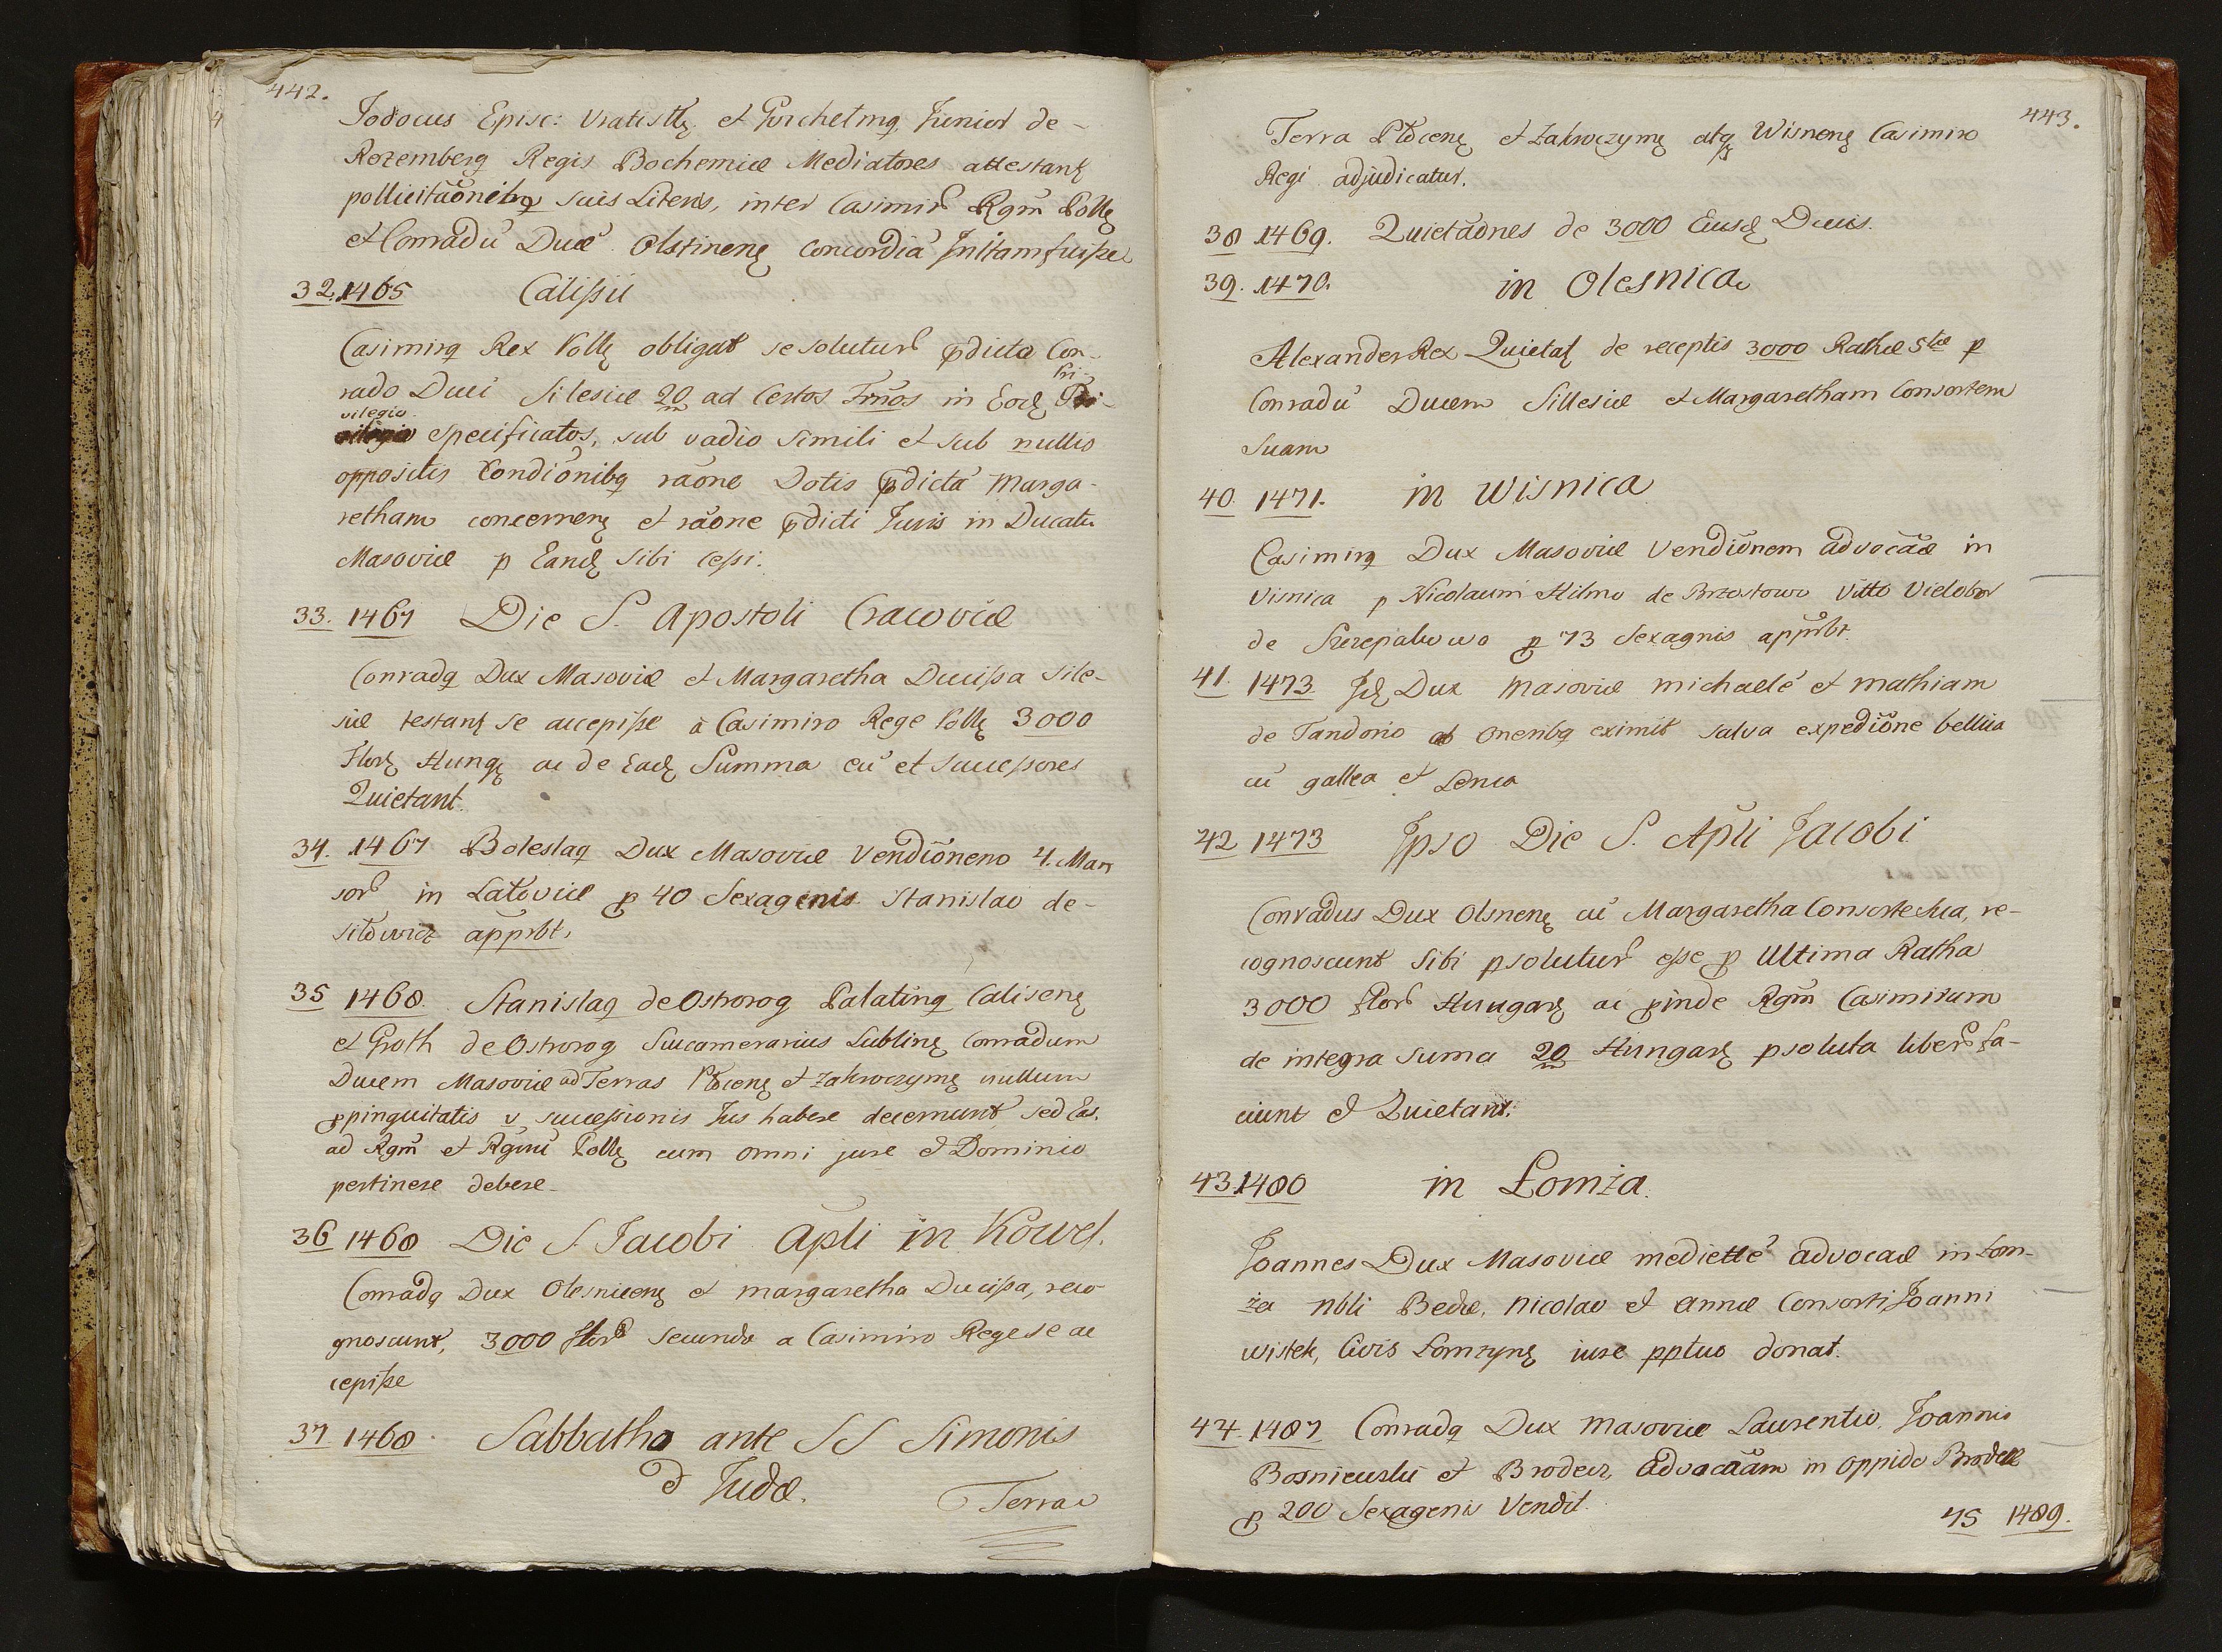 442.
Jodocus Episc: Vratislę et Guichelmq Junior de-
Rozemberg Regis Bochemiæ Mediatores attestantę
pollicitãonibq suis Literis, inter Casimirũ Rgm̃ Pollę
et Conradũ Ducẽ Olstinenę Concordiã Initam fuiſse
32. 1465 Caliſsii
Casimirq Rex Pollę obligat se soluturũ p̃dicto Con-
rado Duci Silesiæ 20/m ad Certos Trmĩos in Eodę Pri-
vilegio specificatos, sub vadio simili et sub nullis
oppositis Condiõnibq rãone Dotis p̃dictã Marga-
retham concernenę et rãone p̃dicti Juris in Ducatu
Masoviæ p Eandę sibi ceſsi.
33. 1467 Die S. Apostoli Cracoviæ
Conradq Dux Masoviæ et Margaretha Duciſsa Sile-
siæ testantę se accepiſse à Casimiro Rege Pollę 3000
Florę Hungę ac de Eadę Summa eũ et Succeſsores
Quietant.
34. 1467 Boleslaq Dux Masoviæ Vendiõnem 4. Man
sorũ in Latoviæ p 40 Sexagenis Stanislao de-
apprbt.
35 1468. Stanislaq de Ostrorog Palatinq Calisenę
et Groth de Ostrorog Succamerarius Lublinę Conradum
Ducem Masoviæ ad Terras Płocenę et Zakroczymę nullum
ppinquitatis v succeſsionis Jus habere decernunt, sed Eas.
ad Rgm̃ et Rgnũ Pollę cum omni jure et Dominio
pertinere debere-
36 1468 Die S. Jacobi Apli in Kowel.
Conradq Dux Olesnicenę et margaretha Duciſsa, reco
gnoscunt, 3000 florũ secundo a Casimiro Rege se ac
cepiſse
37 1468. Sabbatho ante SS Simonis
et Judæ.
Terra
443.
Terra Płocenę et Zakroczymę atq Wisnenę Casimiro
Regi adjudicatur.
38 1469. Quietãones de 3000 Eiusdę Ducis.
39. 1470. in Olesnica
Alexander Rex Quietatę de receptis 3000 Rathæ 5tæ p
Conradũ Ducem Sillesiæ et Margaretham Consortem
Suam
40. 1471. in Wisnica
Casimirq Dux Masoviæ Vendiõnem advocãæ in
Visnica p Nicolaum Hilmo de Brzostowo Vitto Vielobor
de Szczepakowo p 73 Sexagnis apprbt.
41. 1473 Jdę Dux Masoviæ michaelẽ et mathiam
de Tandorio ab Oneribq eximit salva expediõne bellica
cũ gallea et Lenca
42 1473 Ipso Die S. Apli Jacobi.
Conradus Dux Olsnenę cũ Margaretha Consorte sua, re-
cognoscunt sibi psoluturũ eſse p Ultima Ratha
3000 florũ Hungarę ac pinde Rgm̃ Casimirum
de integra suma 20/m Hungarę psoluta liberũ fa-
ciunt et Quietant.
43. 1480 in Łomża.
Joannes Dux Masoviæ medietẽ advocaæ in Łom-
ża Nbli Bedæ, Nicolao et Annæ Consorti Joanni
wistek, Civis Łomzynę iure pptuo donat.
44. 1487 Conradq Dux Masoviæ Laurentio, Joannis
et Brodecz, Advocãam in Oppido Brodek
p 200 Sexagenis Vendit.
45 1489.